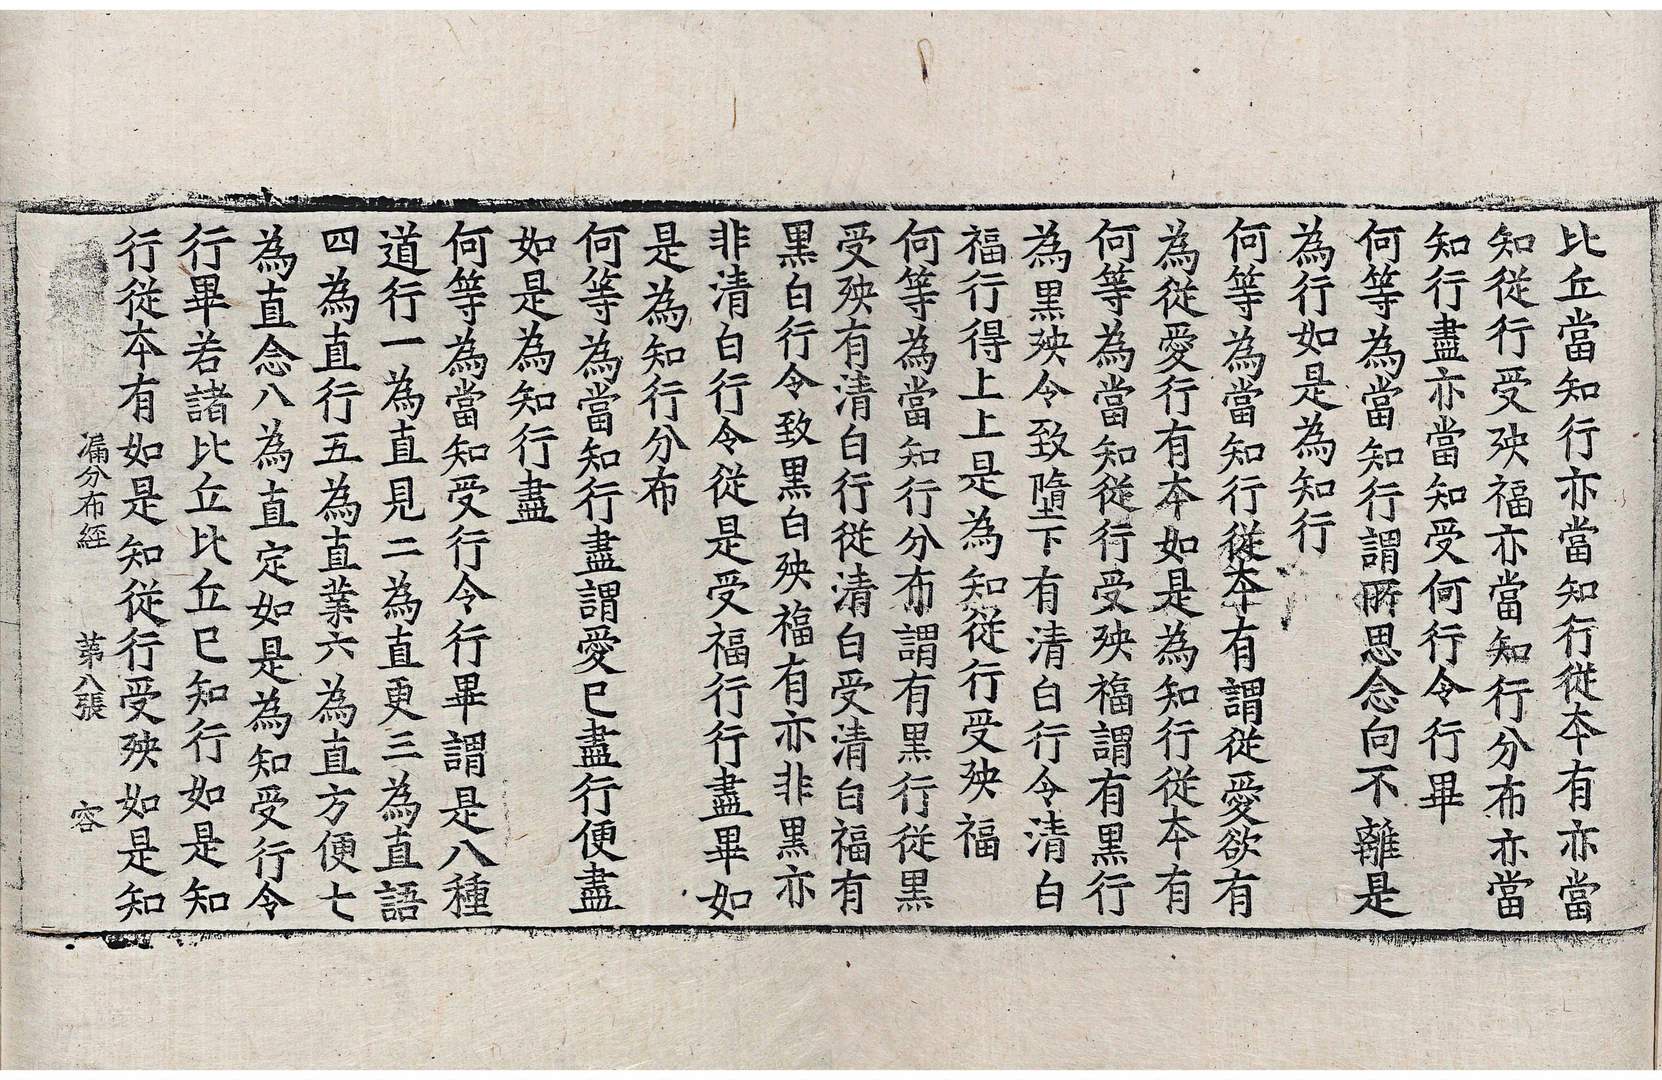 比丘當知行亦當知行從本有亦當
知從行受殃福亦當知行分布亦當
知行盡亦當知受何行令行畢
何等為當知行謂所思念向不離是
為行如是為知行
何等為當知行從本有謂從愛欲有
為從愛行有本如是為知行從本有
何等為當知從行受殃福謂有黑行
為黑殃令致墮下有清白行令清白
福行得上上是為知從行受殃福
何等為當知行分布謂有黑行從黑
受殃有清白行從清白受清白福有
黑白行令致黑白殃福有亦非黑亦
非清白行令從是受福行行盡畢如
是為知行分布
何等為當知行盡謂愛已盡行便盡
如是為知行盡
何等為當知受行令行畢謂是八種
道行一為直見二為直更三為直語
四為直行五為直業六為直方便七
為直念八為直定如是為知受行令
行畢若諸比丘比丘已知行如是知
行從本有如是知從行受殃如是知
漏分布經 第八張 容